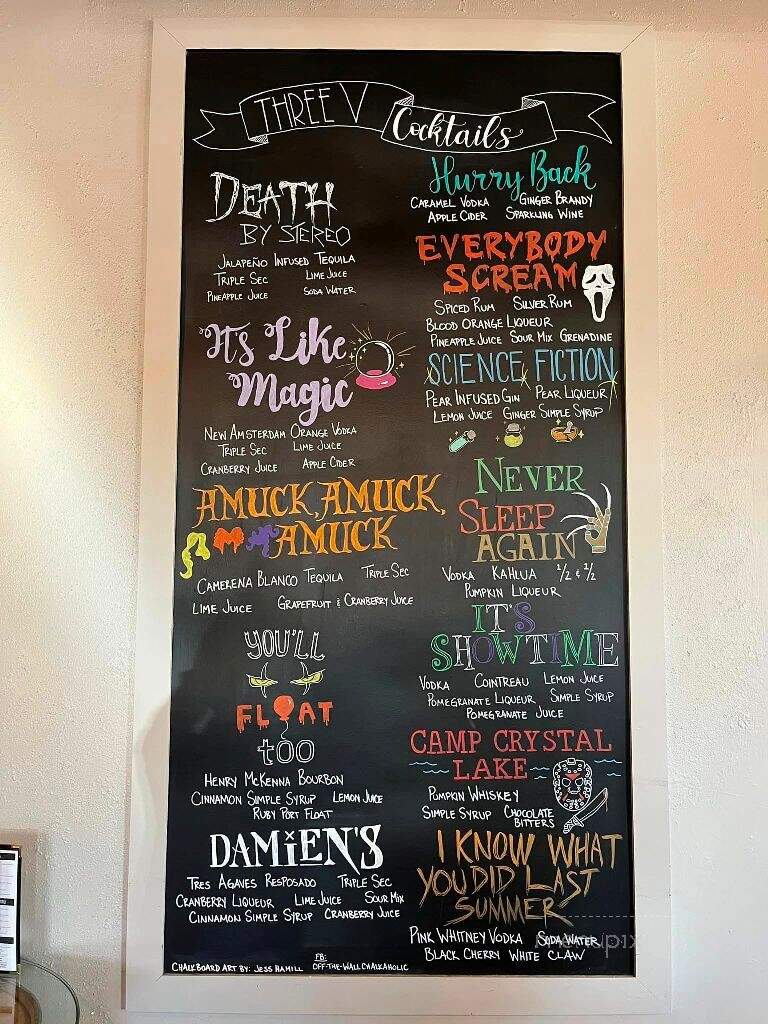 THREE V Cocktails
DEATH
BY STEREO
JALAPEÑO INFUSED TEQUILA
TRIPLE SEC LIME JUICE
PINEAPPLE JUICE SODA WATER
It's Like
Magic
NEW AMSTERDAM ORANGE VODKA
TRIPLE SEC LIME JUICE
CRANBERRY JUICE APPLE CIDER
AMUCK, AMUCK,
AMUCK
CAMERENA BLANCO TEQUILA TRIPLE SEC
LIME JUICE GRAPEFRUIT & CRANBERRY JUICE
YOU'LL
FLOAT
too
HENRY MCKENNA BOURBON
CINNAMON SIMPLE SYRUP LEMON JUICE
RUBY PORT FLOAT
DAMiEN'S
TRES AGAVES RESPOSADO TRIPLE SEC
CRANBERRY LIQUEUR LIME JUICE SOUR MIX
CINNAMON SIMPLE SYRUP CRANBERRY JUICE
Hurry Back
CARAMEL VODKA GINGER BRANDY
APPLE CIDER SPARKLING WINE
EVERYBODY
SCREAM
SPICED RUM SILVER RUM
BLOOD ORANGE LIQUEUR
PINEAPPLE JUICE SOUR MIX GRENADINE
SCIENCE FICTION
PEAR INFUSED GIN PEAR LIQUEUR
LEMON JUICE GINGER SIMPLE SYRUP
NEVER
SLEEP
AGAIN
VODKA KAHLUA 1/2 & 1/2
PUMPKIN LIQUEUR
IT'S
SHOWTIME
VODKA COINTREAU LEMON JUICE
POMEGRANATE LIQUEUR SIMPLE SYRUP
POMEGRANATE JUICE
CAMP CRYSTAL
LAKE
PUMPKIN WHISKEY
SIMPLE SYRUP CHOCOLATE
BITTERS
I KNOW WHAT
YOU DID LAST
SUMMER
PINK WHITNEY VODKA SODA WATER
BLACK CHERRY WHITE CLAW
CHALKBOARD ART BY: JESS HAMILL
FB:
OFF-THE-WALL CHALKAHOLIC
menupix